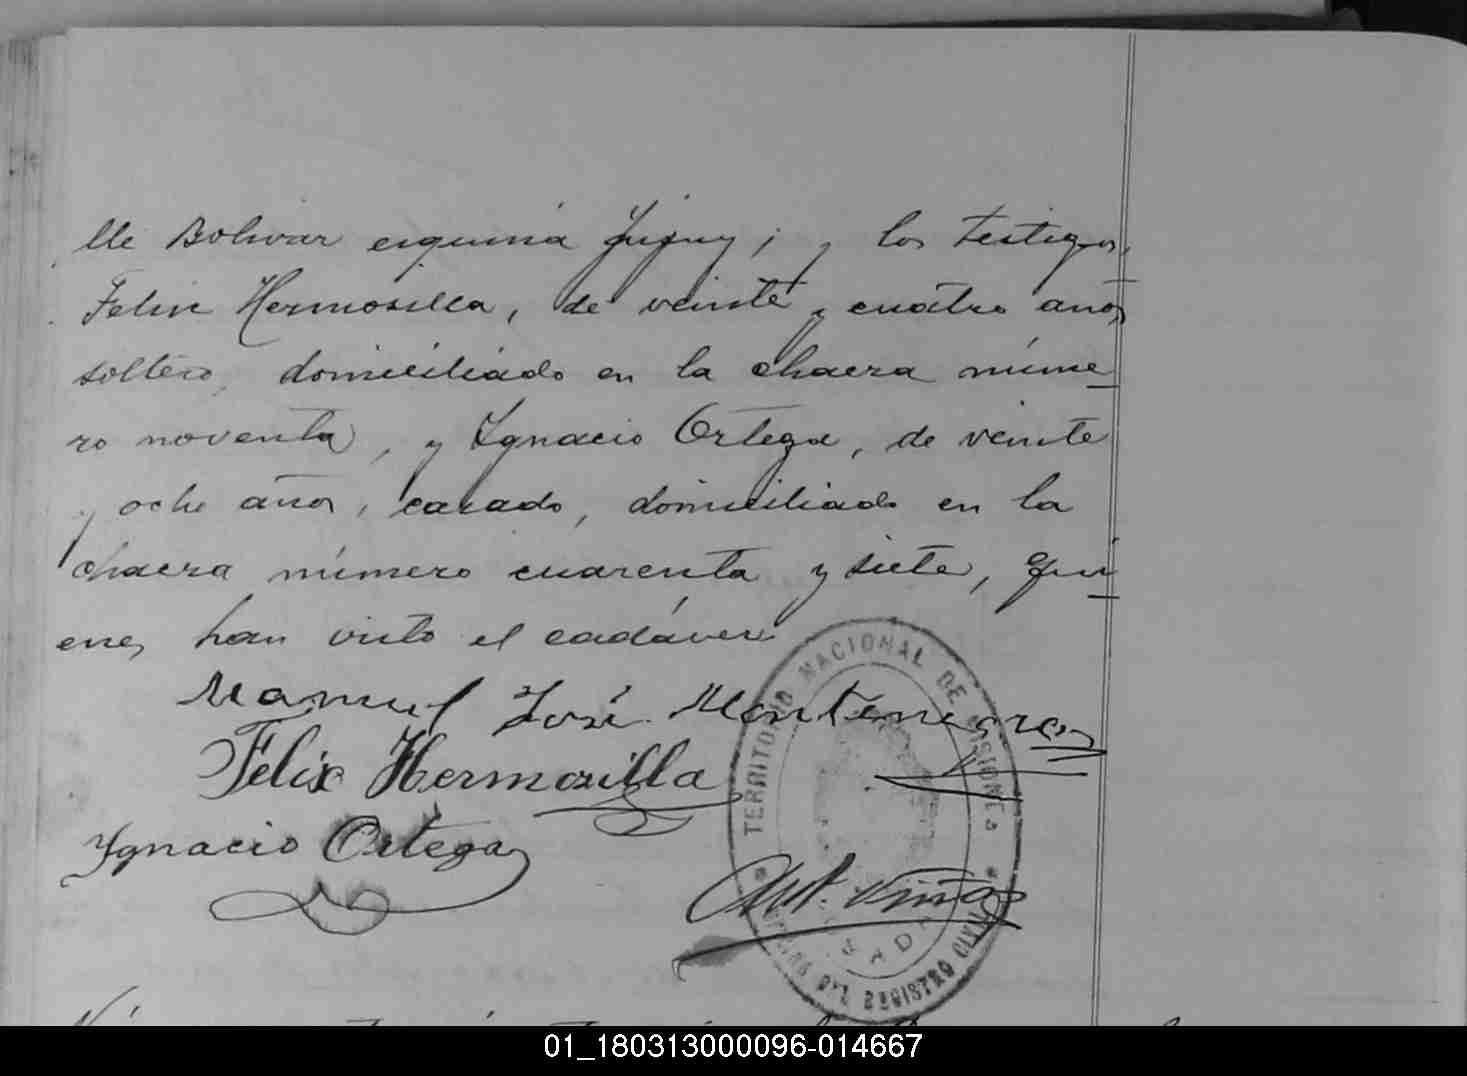 lle Bolivar esquina Jujuy; y los testigos,
Felix Hermosilla, de veinte y cuatro años
soltero, domiciliado en la chacra núme
ro noventa, y Ignacio Ortega, de veinte
y ocho años, casado, domiciliado en la
chacra número cuarenta y siete, qui
enes han visto el cadáver
Manuel José Montenegro
Felix Hermosilla
Ignacio Ortega
Ant. Viña
TERRITORIO NACIONAL DE MISIONES
REGISTRO CIVIL
01_180313000096-014667